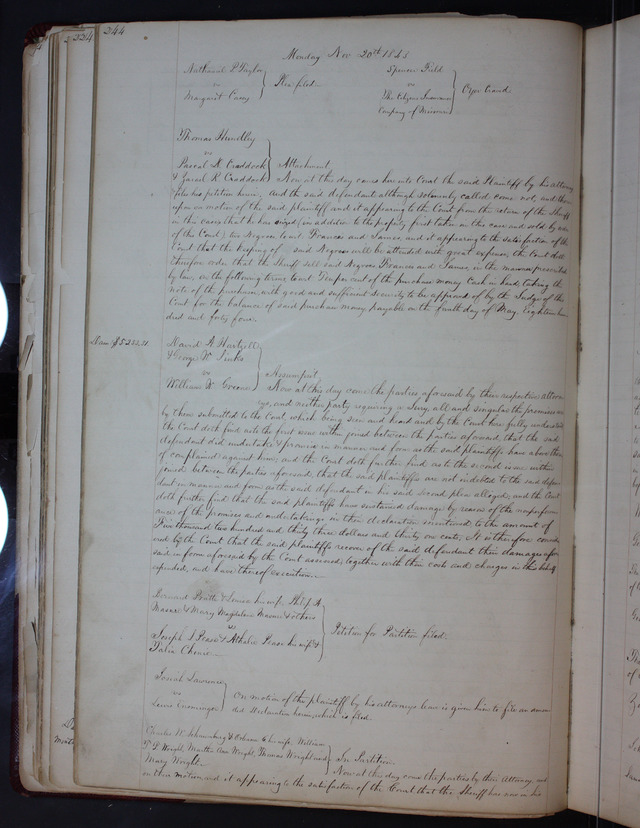 244
224
Monday Nov 20th 1843
Nathaniel P Taylor
vs
Margaret Carey
Plea filed
Spencer Field
vs
The Citizens Insurance
Company of Missouri
Oyer Craved
Thomas Hundley
vs
Pascal H. Craddock
& Jared R Craddock
Attachment
Now at this day comes here into Court the said Plaintiff by his attorney
files his petition herein, And the said defendant although solemnly called come not, and there
upon on motion of the said plaintiff and it appearing to the Court from the return of the Sheriff
in this cause that he has seized (in addition to the property first taken in this case and sold by order
of this Court) two Negroes to wit Frances and James, and it appearing to the satisfaction of the
Court that the keeping of said Negroes will be attended with great expense, the Court doth
therefor order that the Sheriff sell said Negroes Frances and James, in the manner prescribed
by law, on the following terms to wit Ten per cent of the purchase money Cash in hand, taking the
note of the purchaser with good and sufficient security to be approved of by the Judge of this
Court for the balance of said purchase money payable on the fourth day of May, Eighteen hun
dred and forty four.
Dam $5233,31.
David
& George W
vs
William W Greene
Assumpsit
Now at this day come the parties aforesaid by their respective attor
neys, and neither party requiring a Jury, all and singular the premises are
by them submitted to the Court, which being seen and heard and by the Court here fully understood
the Court doth find as to the first issue within joined between the parties aforesaid, that the said
defendant did undertake & promise in manner and form as the said plaintiffs have above there
of complained against him; and the Court doth further find as to the second issue within
joined between the parties aforesaid, that the said plaintiffs are not indebted to the said defen
dant in manner and form as the said defendant in his said second plea alleged, and the Court
doth further find that the said plaintiffs have sustained damage by reason of the nonperform
ance of the promises and undertakings in their declaration mentioned to the amount of
Five thousand two hundred and thirty three dollars and thirty one cents, It is therefore consid
ered by the Court that the said plaintiffs recover of the said defendant their damages afore
said in form aforesaid by the Court assessed, together with their costs and charges in this behalf
expended, and have thereof execution.
Bernard Pratte & Louisa his wife,
& Mary Magdalene & others
vs
Joseph & Nathalie his wife &
Julia Chenie
Petition for Partition filed.
Josiah Lawrence
vs
Lewis
On motion of the plaintiff by his attorneys leave is given him to file an amen
ded declaration herein, which is filed.
Charles W. Schaumburg & his wife, William
P. D Wright, Martha Ann Wright, Thomas Wright and
Mary Wright
In Partition
Now at this day come the parties by their Attorney, and
on their motion and it appearing to the satisfaction of the Court that the Sheriff has now in his